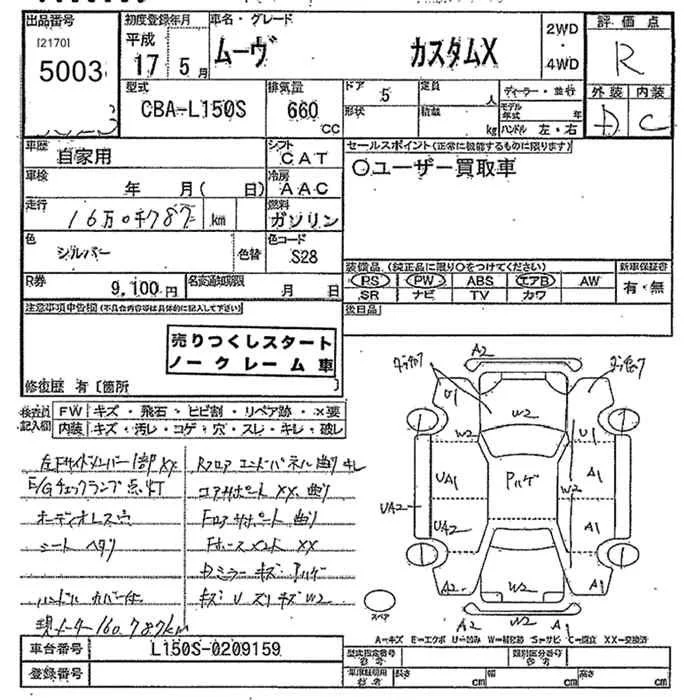 出品番号
[2170]
5003
初度登録年月
平成
17 5月
車名・グレード
ムーヴ カスタムX
2WD
・
4WD
評価点
R
型式
CBA-L150S
排気量
660
CC
ドア
5
定員
人
形状
積載
kg
ディーラー・並行
モデル年式 年
ハンドル 左・右
外装 内装
D C
車歴
自家用
シフト
CAT
車検
年 月( 日)
冷房
AAC
走行
16万0千787 km
燃料
ガソリン
色
シルバー
色替
色コード
S28
R券
9,100円
名変通知期限
月 日
セールスポイント(正常に機能するものに限ります)
○ユーザー買取車
装備品 (純正品に限り○をつけてください)
PS PW ABS エアB AW
SR ナビ TV カワ
新車保証書
有・無
後日品
注意事項申告欄(不具合内容等は具体的に記入して下さい)
売りつくしスタート
ノークレーム車
修復歴 有 [箇所 ]
検査員
記入欄
FW キズ・飛石・ヒビ割・リペア跡・×要
内装 キズ・汚レ・コゲ・穴・スレ・キレ・破レ
左Fサイドメンバー1部XX
E/Gチェックランプ点灯
オーディオレス穴
シート ヘタリ
ハンドル カバー
現メーター160,787km
Rフロア エンドパネル曲り キレ
コアサポート XX 曲り
Fロアサポート 曲り
XX
ミラー キズ ハゲ
キズ U スリキズ W2
A2
U1
W2
W2
U1
UA1
Pハゲ
A1
W2
UA2
UA2
A1
A2
W2
A1
A2
W2
A1
スペア
A=キズ E=エクボ U=凹み W=補修跡 S=サビ C=腐食 XX=交換済
車台番号
L150S-0209159
登録番号
型式指定番号
参考
類別区分番号
参考
車庫証明用
参考
長さ cm
幅 cm
高さ cm